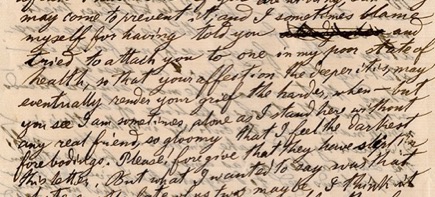 may come to prevent it, and I sometimes blame
myself for having told you and
tried to attach you to one in my poor state of
health, so that your affection the deeper it is may
eventually render your grief the harder, when — but
you see I am sometimes, alone as I stand here without
any real friend, so gloomy that I feel the darkest
forebodings. Please forgive that they have slipt in
this letter. But what I wanted to say was that
maybe I think it